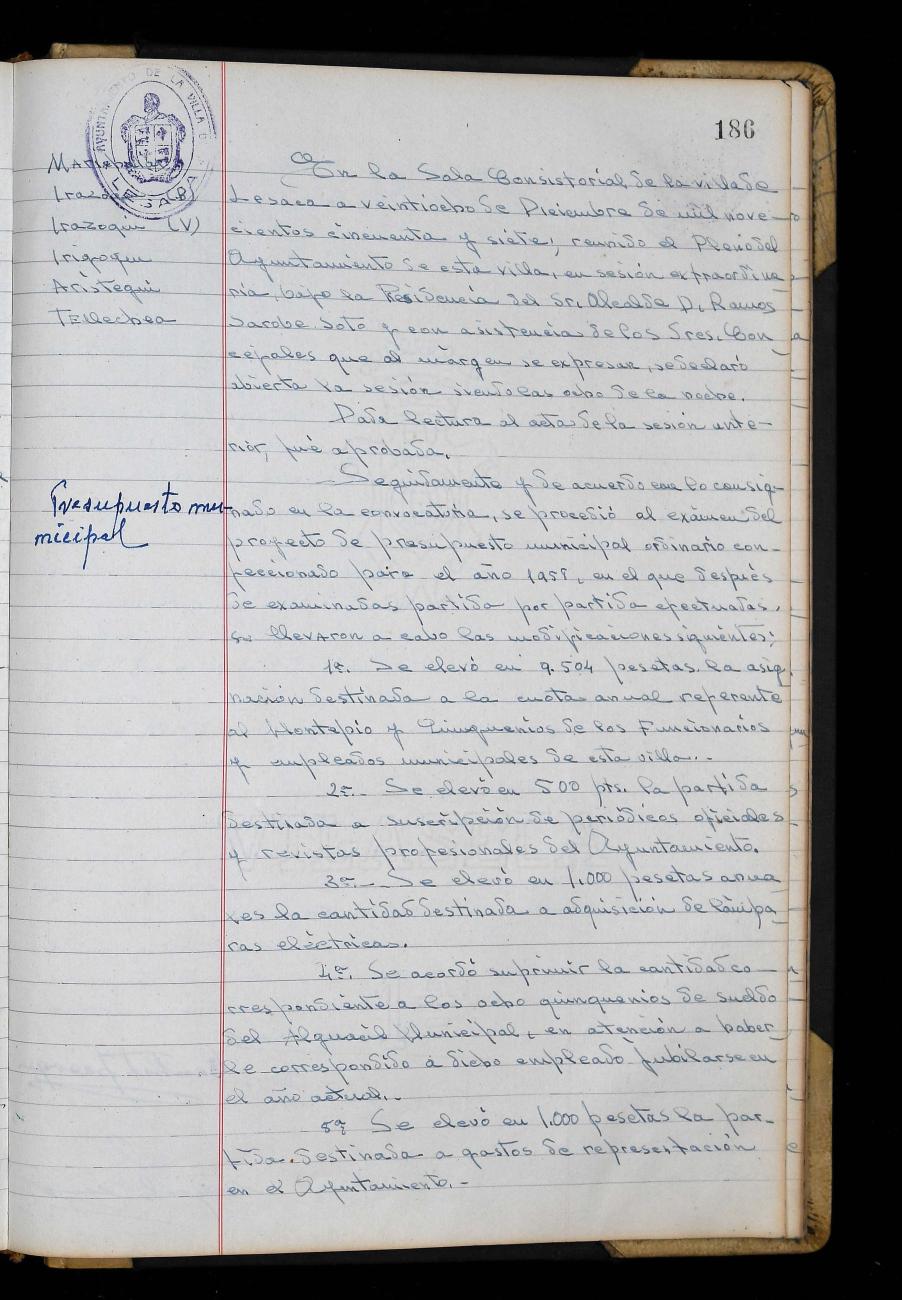 186
AYUNTAMIENTO DE LA VILLA
LESACA
Irazoqui (B)
Irazoqui (V)
Irigoyen
Aristegui
Tellechea
En la Sala Consistorial de la villa de
Lesaca a veintiocho de Diciembre de mil nove-
cientos cincuenta y siete, reunido el Pleno del
Ayuntamiento de esta villa, en sesión extraordina
ria, bajo la Presidencia del Sr. Alcalde D. Ramos
Sarobe Soto y con asistencia de los Sres. Con
cejales que al márgen se expresan, se declaró
abierta la sesión siendo las ocho de la noche.
Dada lectura al acta de la sesión ante-
rior, fué aprobada.
Presupuesto mu-
nicipal
Seguidamente y de acuerdo con lo consig-
nado en la convocatoria, se procedió al exámen del
proyecto de presupuesto municipal ordinario con-
feccionado para el año 1958, en el que después
de examinadas partida por partida efectuadas,
se llevaron a cabo las modificaciones siguientes:
1ª. Se elevó en 9.504 pesetas la asig
nación destinada a la cuota anual referente
al Montepio y Quinquenios de los Funcionarios
y empleados municipales de esta villa.-
2ª.- Se elevó en 500 pts. la partida
destinada a suscripción de periódicos oficiales
y revistas profesionales del Ayuntamiento.
3ª.- Se elevó en 1.000 pesetas anua
les la cantidad destinada a adquisición de lámpa
ras eléctricas.
4ª. Se acordó suprimir la cantidad co-
rrespondiente a los ocho quinquenios de sueldo
del Alguacil Municipal, en atención a haber
le correspondido a dicho empleado jubilarse en
el año actual.-
5ª Se elevó en 1.000 pesetas la par-
tida destinada a gastos de representación
en el Ayuntamiento.-